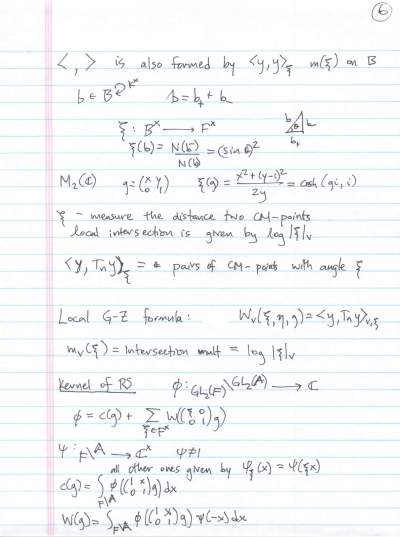 6
< , > is also formed by <y,y>_ξ m(ξ) on B
b ∈ B ↻ K^x b = b_+ + b_-
ξ : B^x ⟶ F^x
b b_- b_+
ξ(b) = N(b_-)/N(b) = (sin θ)^2
M_2(ℂ) g = (x y; 0 1) ξ(g) = (x^2+(y-1)^2)/2y = cosh(gi, i)
ξ - measure the distance two CM-points
local intersection is given by log|ξ|_v
<y, T_n y>_ξ = # pairs of CM-points with angle ξ
Local G-Z formula: W_v(ξ, η, g) = <y, T_n y>_{v,ξ}
m_v(ξ) = Intersection mult = log|ξ|_v
Kernel of RS φ : GL_2(F)\GL_2(𝔸) ⟶ ℂ
φ = c(g) + Σ_{ξ∈F^x} W((ξ 0; 0 1)g)
ψ : F\𝔸 ⟶ ℂ^x ψ≠1
all other ones given by ψ_ξ(x) = ψ(ξx)
c(g) = ∫_{F\𝔸} φ((1 x; 0 1)g) dx
W(g) = ∫_{F\𝔸} φ((1 x; 0 1)g) ψ(-x) dx